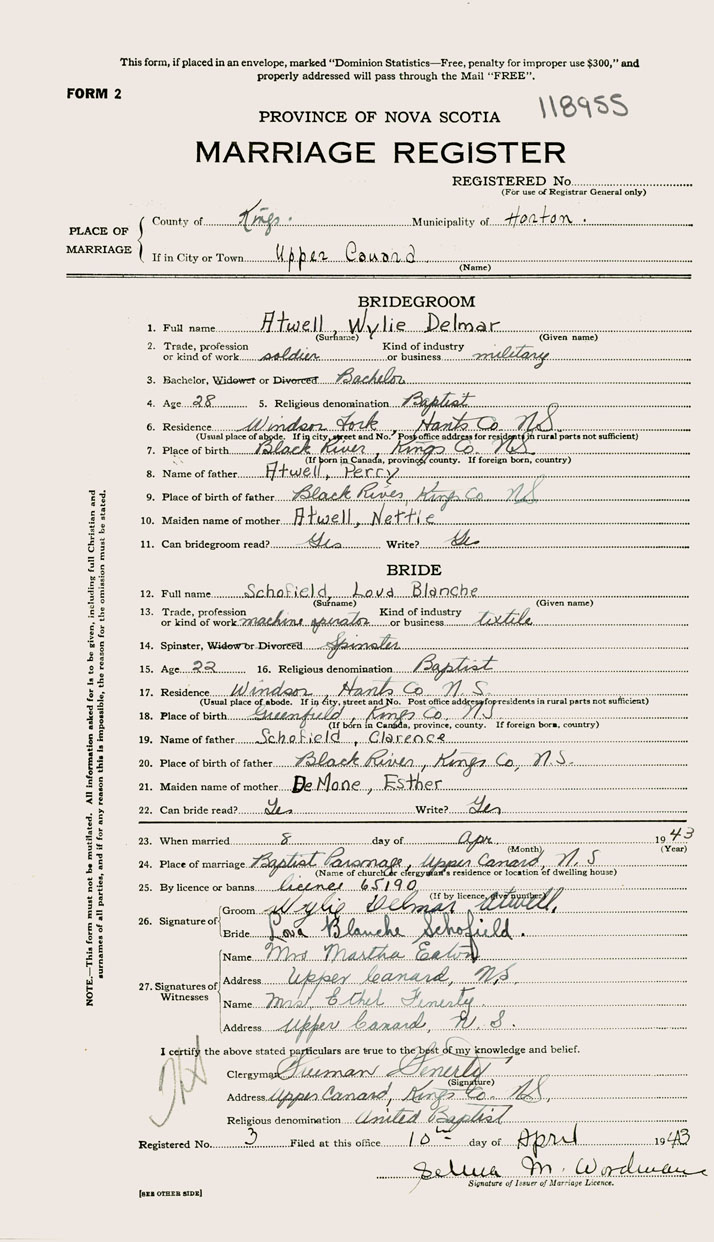 This form, if placed in an envelope, marked "Dominion Statistics—Free, penalty for improper use $300," and
properly addressed will pass through the Mail "FREE".
FORM 2
118955
PROVINCE OF NOVA SCOTIA
MARRIAGE REGISTER
REGISTERED No.
(For use of Registrar General only)
PLACE OF MARRIAGE
County of Kings. Municipality of Horton.
If in City or Town Upper Canard
(Name)
BRIDEGROOM
1. Full name Atwell, Wylie Delmar
(Surname) (Given name)
2. Trade, profession or kind of work soldier Kind of industry or business military
3. Bachelor, Widower or Divorced Bachelor
4. Age 28 5. Religious denomination Baptist
6. Residence Windsor Fork, Hants Co. N.S.
(Usual place of abode. If in city, street and No. Post office address for residents in rural parts not sufficient)
7. Place of birth Black River, Kings Co. NS
(If born in Canada, province, county. If foreign born, country)
8. Name of father Atwell, Perry
9. Place of birth of father Black River, Kings Co NS
10. Maiden name of mother Atwell, Nettie
11. Can bridegroom read? Yes Write? Yes
BRIDE
12. Full name Schofield, Lova Blanche
(Surname) (Given name)
13. Trade, profession or kind of work machine operator Kind of industry or business textile
14. Spinster, Widow or Divorced Spinster
15. Age 22 16. Religious denomination Baptist
17. Residence Windsor, Hants Co N.S.
(Usual place of abode. If in city, street and No. Post office address for residents in rural parts not sufficient)
18. Place of birth Greenfield, Kings Co. NS
(If born in Canada, province, county. If foreign born, country)
19. Name of father Schofield, Clarence
20. Place of birth of father Black River, Kings Co, N.S.
21. Maiden name of mother DeMone, Esther
22. Can bride read? Yes Write? Yes
23. When married 8 day of Apr. 1943
(Month) (Year)
24. Place of marriage Baptist Parsonage, Upper Canard, N.S
(Name of church or clergyman's residence or location of dwelling house)
25. By licence or banns licence 65190
(If by licence, give number)
26. Signature of
Groom Wylie Delmar Atwell,
Bride Lova Blanche Schofield.
27. Signatures of Witnesses
Name Mrs Martha Eaton
Address Upper Canard, N.S.
Name Mrs. Ethel Fenerty
Address Upper Canard, N.S.
I certify the above stated particulars are true to the best of my knowledge and belief.
Clergyman Fenerty
(Signature)
Address Upper Canard, Kings Co. NS,
Religious denomination United Baptist
Registered No. 3 Filed at this office 10th day of April 1943
Selina M. Wordman
Signature of Issuer of Marriage Licence.
[SEE OTHER SIDE]
NOTE.—This form must not be mutilated. All information asked for is to be given, including full Christian and
surnames of all parties, and if for any reason this is impossible, the reason for the omission must be stated.